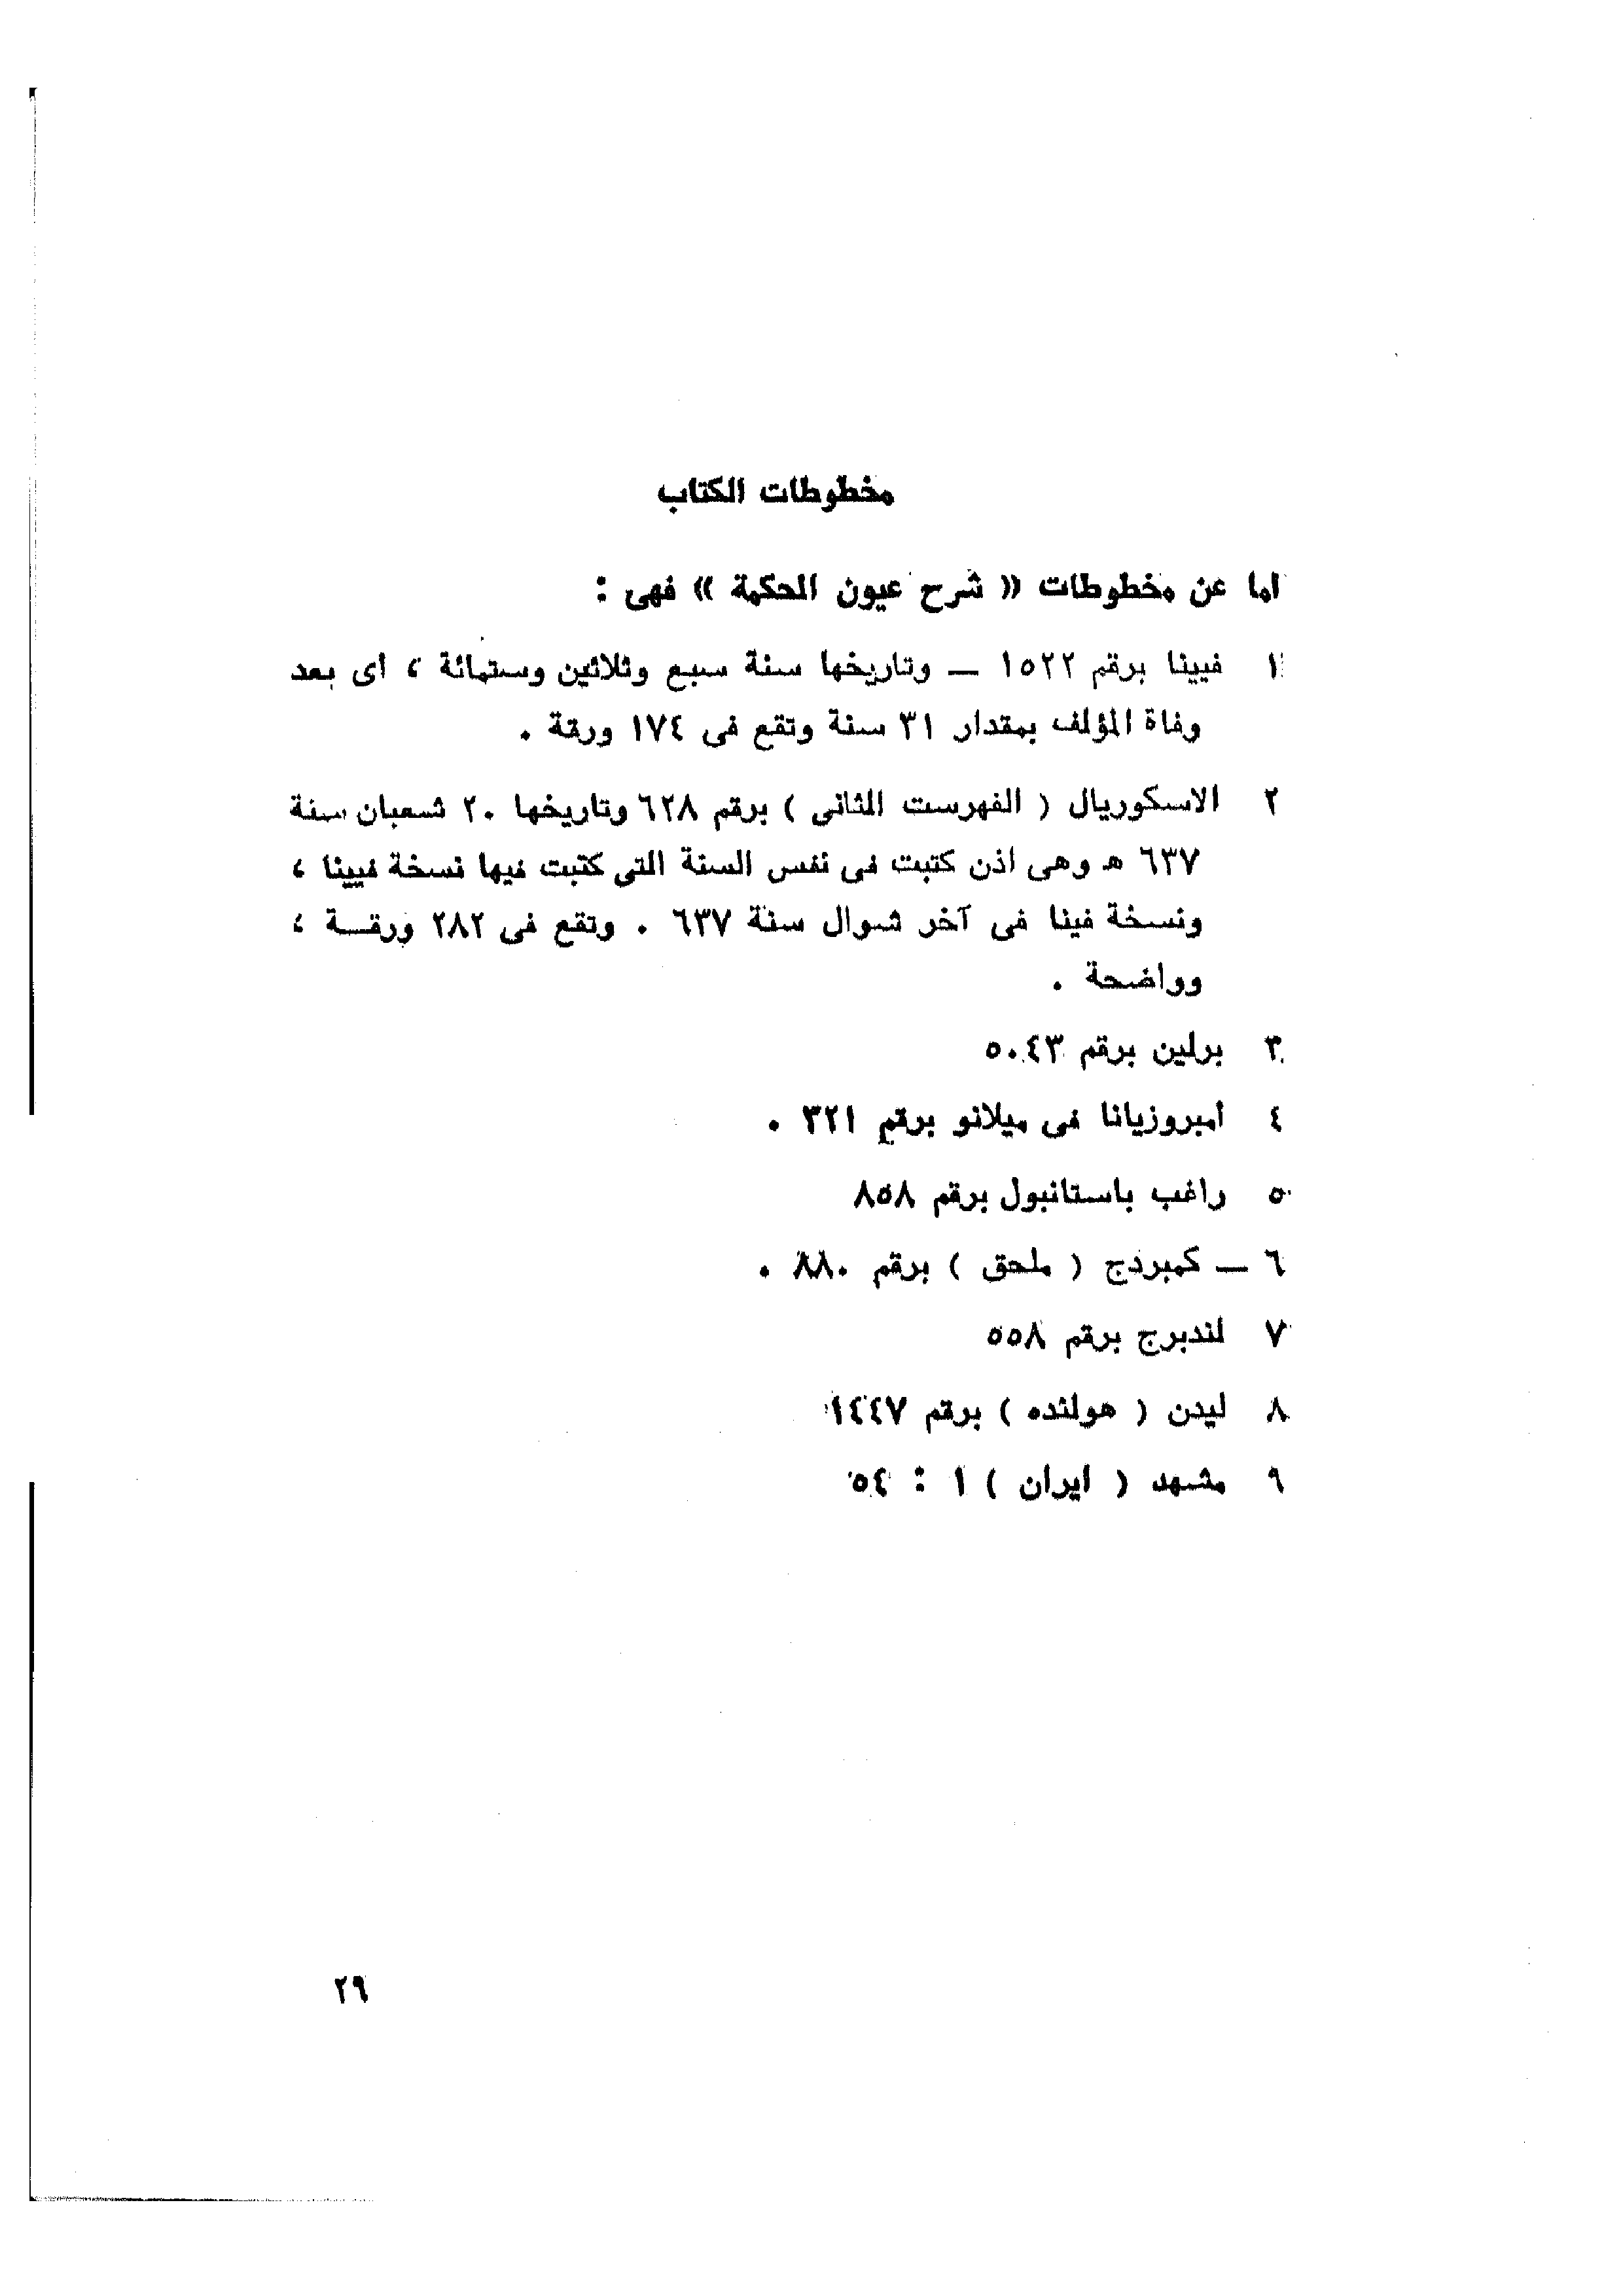 مخطوطات الكتاب
اما عن مخطوطات « شرح عيون الحكمة » فهى :
١ فيينا برقم ١٥٢٢ — وتاريخها سنة سبع وثلاثين وستمائة ، أى بعد
وفاة المؤلف بمقدار ٣١ سنة وتقع فى ١٧٤ ورقة .
٢ الاسكوريال ( الفهرست الثانى ) برقم ٦٢٨ وتاريخها ٢٠ شعبان سنة
٦٣٧ هـ وهى اذن كتبت فى نفس السنة التى كتبت فيها نسخة فيينا ،
ونسخة فينا فى آخر شوال سنة ٦٣٧ . وتقع فى ٢٨٢ ورقة ،
وواضحة .
٣ برلين برقم ٥٠٤٣
٤ أمبروزيانا فى ميلانو برقم ٣٢١ .
٥ راغب باستانبول برقم ٨٥٨
٦ — كمبردج ( ملحق ) برقم ٨٨٠ .
٧ لندبرج برقم ٥٥٨
٨ ليدن ( هولنده ) برقم ١٤٤٧
٩ مشهد ( ايران ) ١ : ٥٤
٢٩